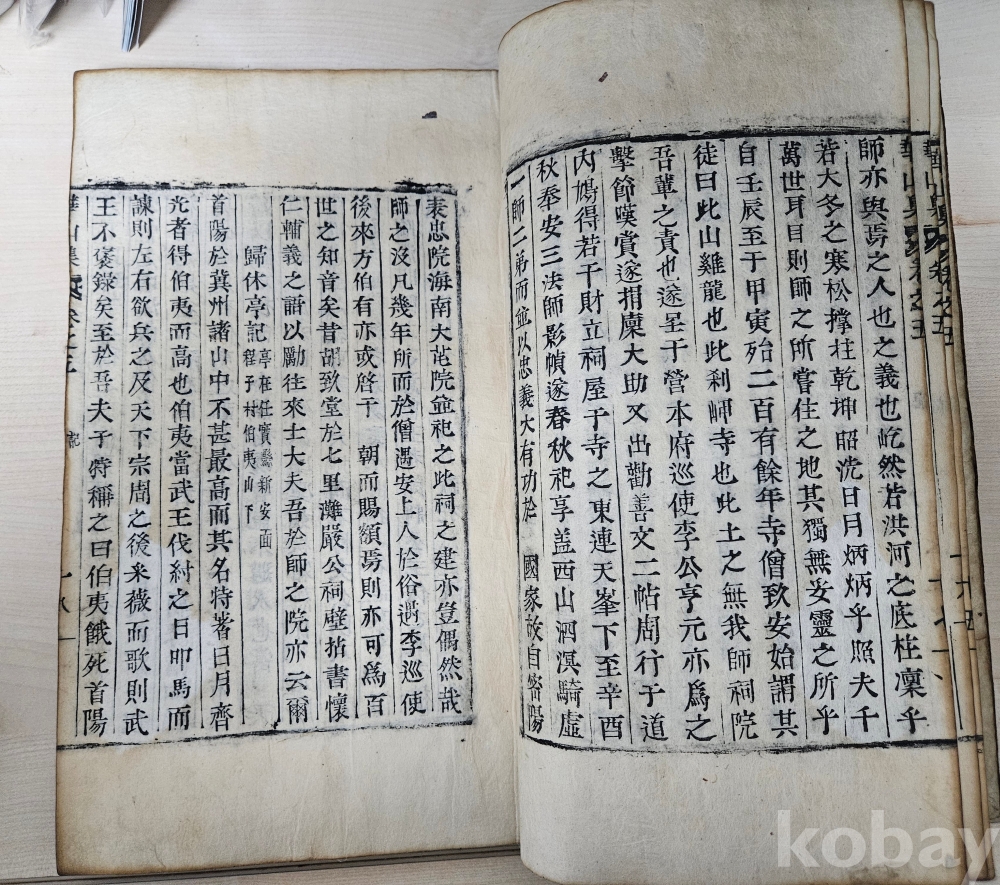 師亦與焉之人也之義也屹然若洪河之底柱凜乎
若大冬之寒松撑拄乾坤昭洗日月炳炳乎照夫千
萬世耳目則師之所嘗住之地其獨無妥靈之所乎
自壬辰至于甲寅殆二百有餘年寺僧致安始謂其
徒曰此山雞龍也此刹岬寺也此土之無我師祠院
吾輩之責也遂呈于營本府巡使李公亨元亦爲之
擊節嘆賞遂捐廩大助又出勸善文二帖周行于道
內鳩得若干財立祠屋于寺之東連天峯下至辛酉
秋奉安三法師影幀遂春秋祀享盖西山泗溟騎虛
一師二弟而並以忠義大有功於 國家故自密陽
表忠院海南大芚院並祀之此祠之建亦豈偶然哉
師之沒凡幾年所而於僧遇安上人於俗遇李巡使
後來方伯有亦或啓于 朝而賜額焉則亦可爲百
世之知音矣昔胡致堂於七里灘嚴公祠壁拈書懷
仁輔義之語以勵往來士大夫吾於師之院亦云爾
歸休亭記 亭在任實縣新安面程子村伯夷山下
首陽於冀州諸山中不甚最高而其名特著日月齊
光者得伯夷而高也伯夷當武王伐紂之日叩馬而
諫則左右欲兵之及天下宗周之後采薇而歌則武
王不褒錄矣至於吾夫子特稱之曰伯夷餓死首陽
華山集 卷之五 記 十八
華山集 卷之五